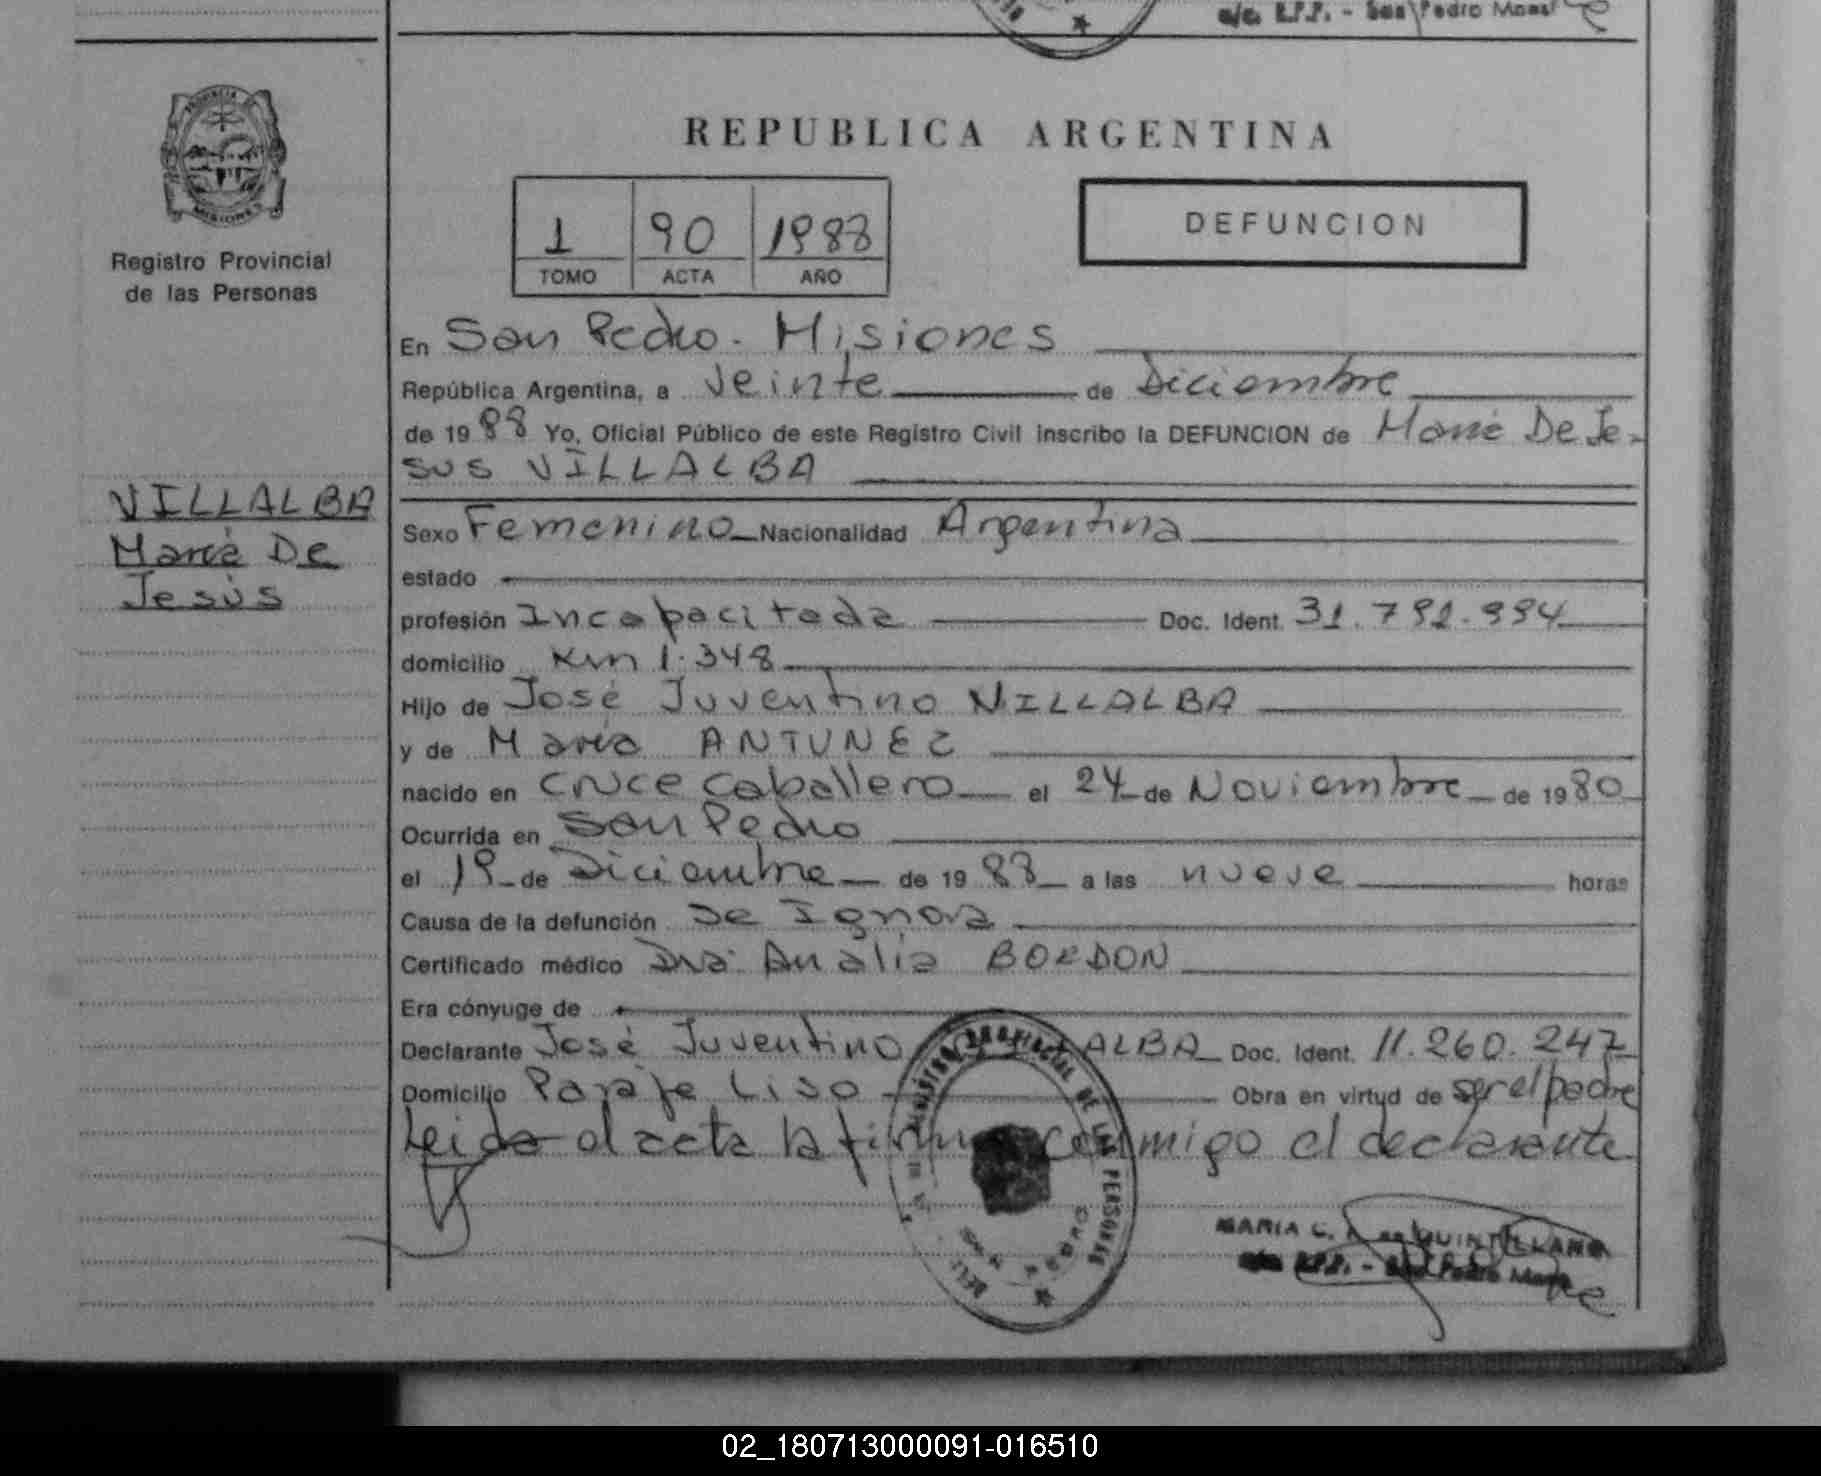 a/c. R.P.P. - San Pedro Mnes/
PROVINCIA DE
MISIONES
Registro Provincial
de las Personas
REPUBLICA ARGENTINA
1 90 1988
TOMO ACTA AÑO
DEFUNCION
En San Pedro - Misiones
República Argentina, a Veinte de Diciembre
de 1988 Yo, Oficial Público de este Registro Civil inscribo la DEFUNCION de María De Je-
sus VILLALBA
VILLALBA
María De
Jesús
Sexo Femenino Nacionalidad Argentina
estado
profesión Incapacitada Doc. Ident. 31.791.994
domicilio Km 1.348
Hijo de José Juventino VILLALBA
y de María ANTUNEZ
nacido en Cruce Caballero el 24 de Noviembre de 1980
Ocurrida en San Pedro
el 19 de Diciembre de 1988 a las nueve horas
Causa de la defunción Se Ignora
Certificado médico Dra. Analía BORDON
Era cónyuge de
Declarante José Juventino ALBA Doc. Ident. 11.260.247
Domicilio Paraje Liso Obra en virtud de ser el padre
Leida el acta la firma conmigo el declarante
REGISTRO PROVINCIAL DE LAS PERSONAS
MARIA C. de QUINTILLANO
a/c R.P.P. - San Pedro Mnes
02_180713000091-016510